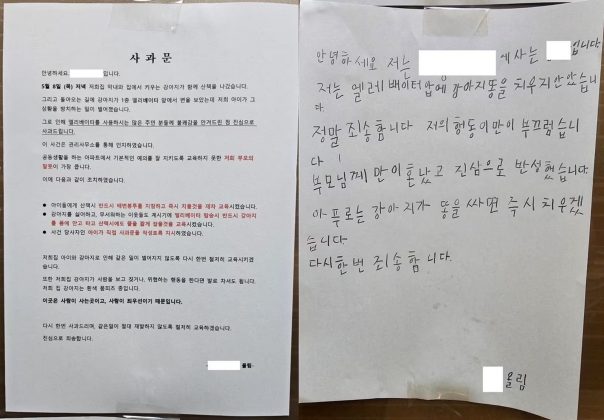 사과문
안녕하세요. 입니다.
5월 8일 (목) 저녁 저희집 막내와 집에서 키우는 강아지가 함께 산책을 나갔습니다.
그리고 돌아오는 길에 강아지가 1층 엘리베이터 앞에서 변을 보았는데 저희 아이가 그
상황을 방치하는 일이 벌어졌습니다.
그로 인해 엘리베이터를 사용하시는 많은 주민 분들께 불쾌감을 안겨드린 점 진심으로
사과드립니다.
이 사건은 관리사무소를 통해 인지하였습니다.
공동생활을 하는 아파트에서 기본적인 예의를 잘 지키도록 교육하지 못한 저희 부모의
잘못이 가장 큽니다.
이에 다음과 같이 조치하였습니다.
● 아이들에게 산책시 반드시 배변봉투를 지참하고 즉시 치울것을 재차 교육시켰습니다.
● 강아지를 싫어하고, 무서워하는 이웃들도 계시기에 엘리베이터 탑승시 반드시 강아지
를 품에 안고 타고 산책시에도 줄을 짧게 잡을것을 교육시켰습니다.
● 사건 당사자인 아이가 직접 사과문을 작성토록 지시하였습니다.
저희집 아이와 강아지로 인해 같은 일이 벌어지지 않도록 다시 한번 철저히 교육시키겠
습니다.
또한 저희집 강아지가 사람을 보고 짖거나, 위협하는 행동을 한다면 발로 차셔도 됩니다.
저희 집 강아지는 흰색 폼피츠 종입니다.
이곳은 사람이 사는곳이고, 사람이 최우선이기 때문입니다.
다시 한번 사과드리며, 같은일이 절대 재발하지 않도록 철저히 교육하겠습니다.
진심으로 죄송합니다.
올림-
안녕하세요 저는 에사는 입니다.
저는 엘레베이터 앞에 강아지똥을 치우지 안았습니
다
정말 죄송합니다 저의 형동이 만이 부끄럽습니
다!
부모님께 만이 혼났고 진심으로 반성했습니다.
아푸로는 강아지가 똥을 싸면 즉시 치우겠
습니다
다시한번 죄송합니다.
올림